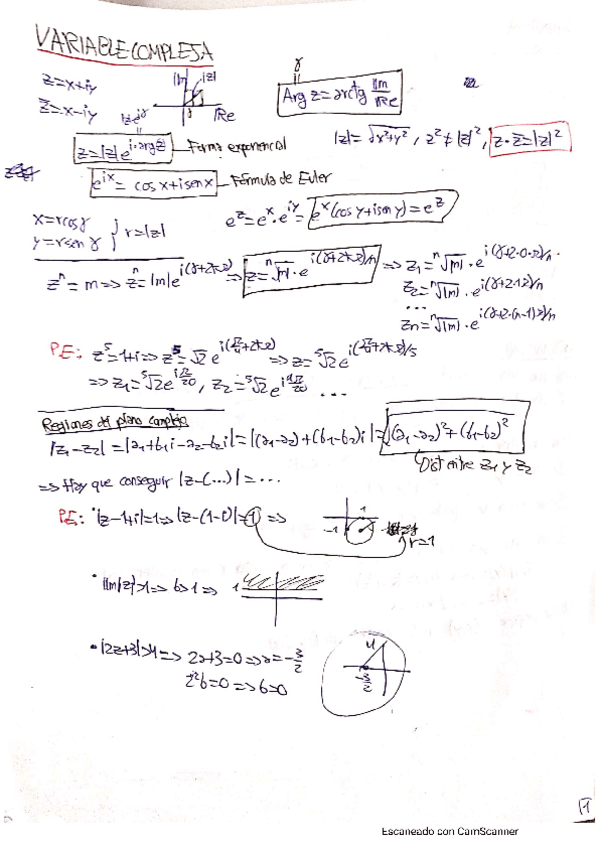 VARIABLE COMPLEJA
z=x+iy
z̄=x-iy
|z|e^iγ
Im |z|
Re
γ
Arg z = arctg Im/Re
z=|z|e^(i·arg z) → Forma exponencial
|z|=√(x²+y²), z²≠|z|², z·z̄=|z|²
e^(ix) = cosx+isenx → Fórmula de Euler
x=rcosγ
y=rsenγ } r=|z|
e^z=e^x·e^(iy)=e^x(cosy+iseny)=e^z
z^n=m => z^n=|m|e^(i(γ+2πk)) => z=ⁿ√|m|·e^(i(γ+2πk)/n) => z1=ⁿ√|m|·e^(i(γ+2·0·π)/n)
z2=ⁿ√|m|·e^(i(γ+2·1π)/n)
...
zn=ⁿ√|m|·e^(i(γ+2·(n-1)π)/n)
P.E: z^5=1+i => z^5=√2 e^(i(π/4+2πk)) => z=⁵√2 e^(i(π/4+2πk)/5)
=> z1=⁵√2 e^(iπ/20), z2=⁵√2 e^(i9π/20) ...
Regiones del plano complejo
|z1-z2|=|a1+b1i-a2-b2i|=|(a1-a2)+(b1-b2)i|=√((a1-a2)²+(b1-b2)²)
Dist entre z1 y z2
=> Hay que conseguir |z-(...)|=...
P.E: · |z-1+i|=1 => |z-(1-i)|=1 =>
1
-1
r=1
· Im|z|>1 => b>1 => 1
· |2z+3|>4 => 2a+3=0 => a=-3/2
2b=0 => b=0
4
-3/2
1
Escaneado con CamScanner